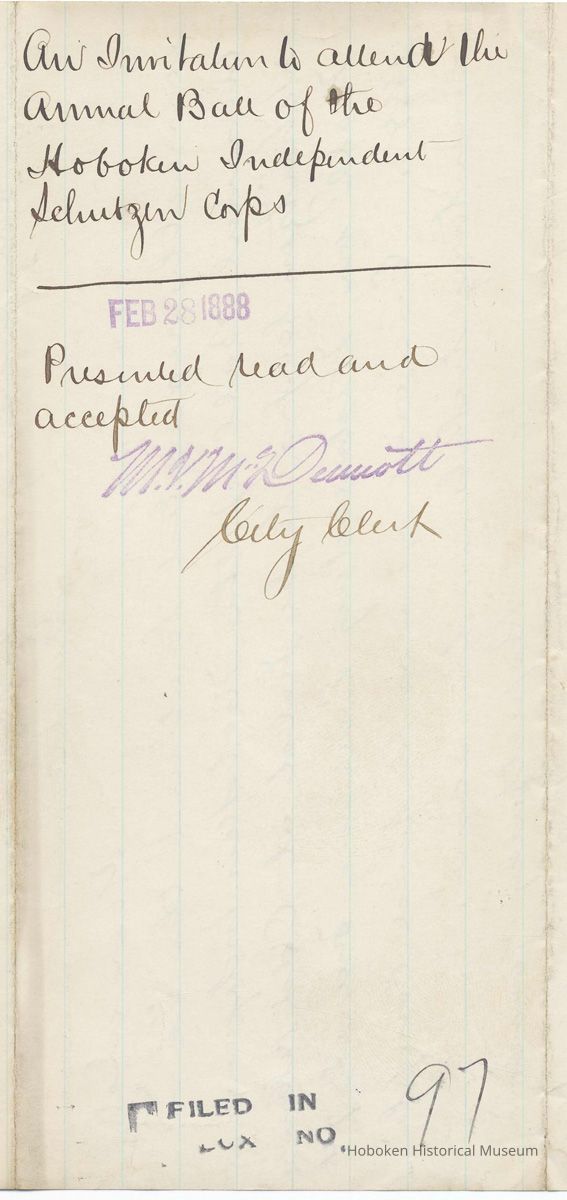 An Invitation to attend the
Annual Ball of the
Hoboken Independent
Schutzen Corps
FEB 28 1888
Presented read and
accepted
M.V. McDermott
City Clerk
97
FILED IN
BOX NO.
Hoboken Historical Museum